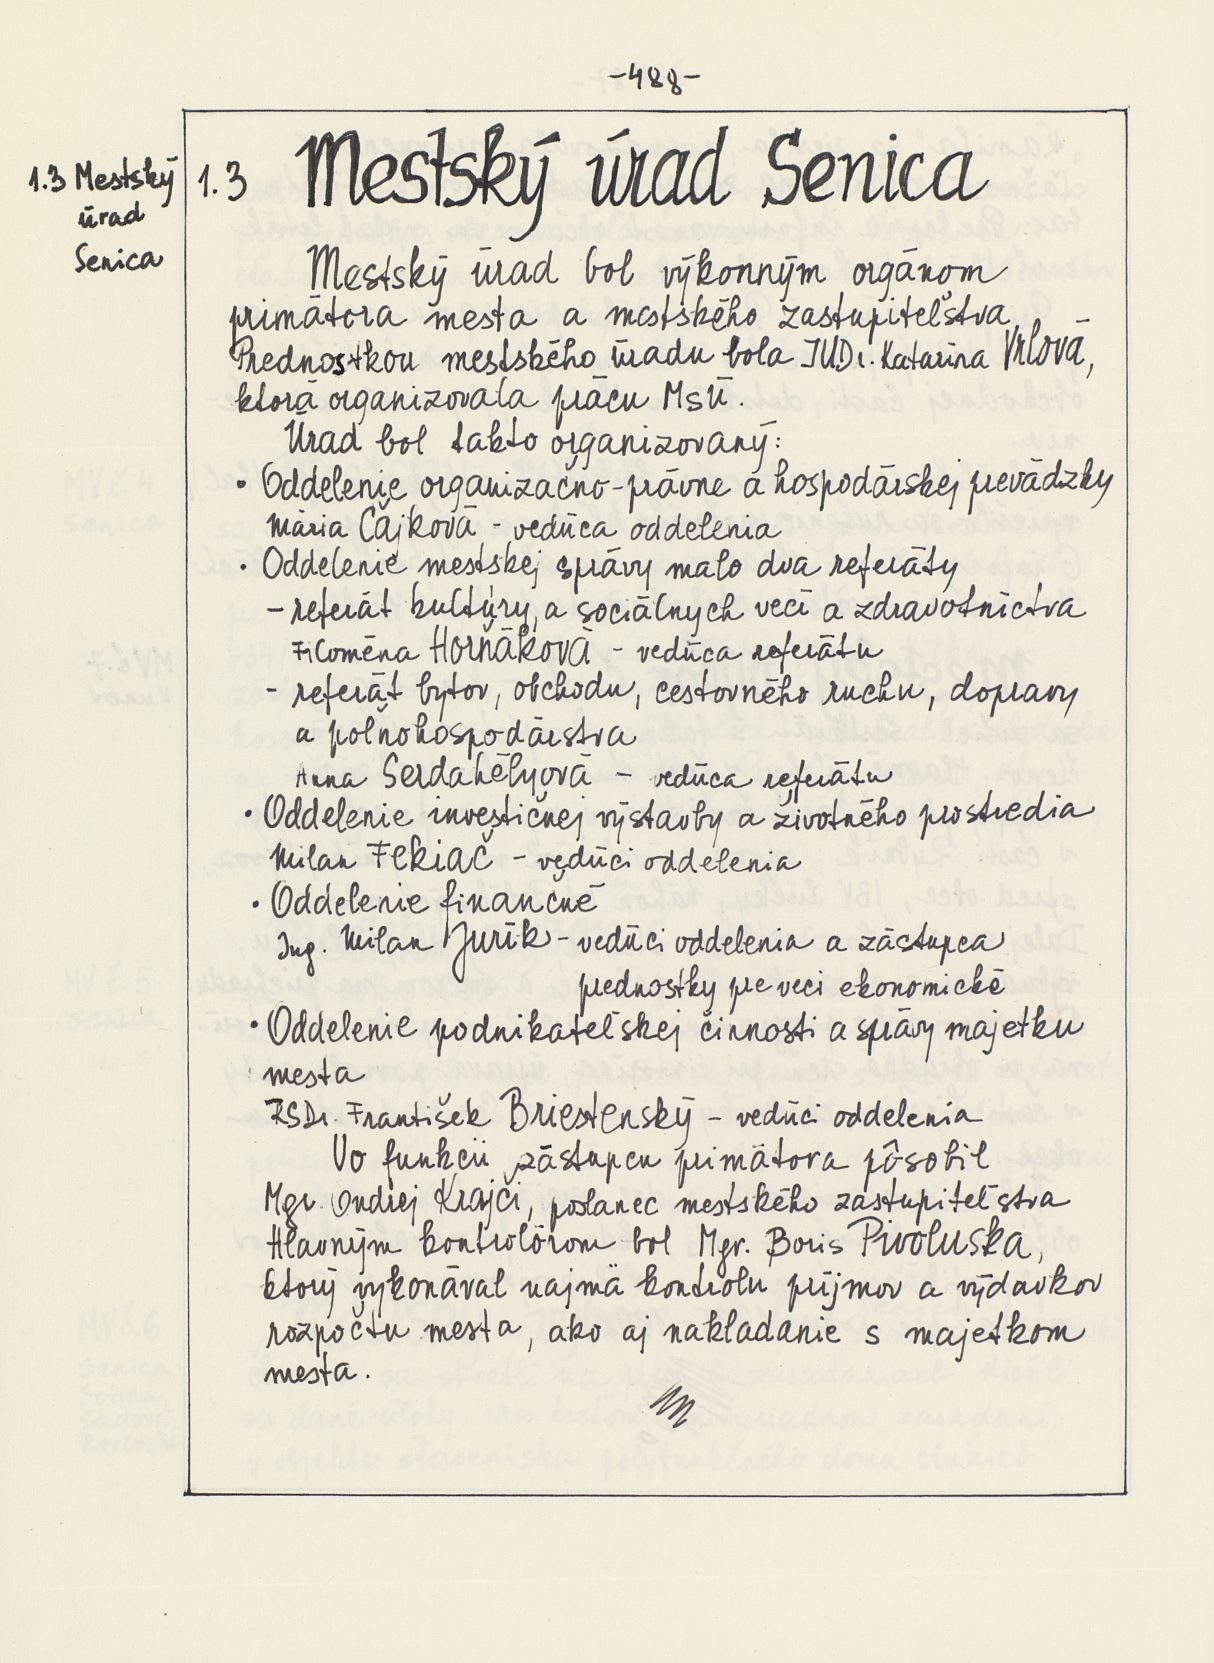 -488-
1.3 Mestský
úrad
Senica
1.3 Mestský úrad Senica
Mestský úrad bol výkonným orgánom
primátora mesta a mestského zastupiteľstva.
Prednostkou mestského úradu bola JUDr. Katarína Vrlová,
ktorá organizovala prácu MsÚ.
Úrad bol takto organizovaný:
• Oddelenie organizačno-právne a hospodárskej prevádzky
Mária Čajková - vedúca oddelenia
• Oddelenie mestskej správy malo dva referáty
- referát kultúry, a sociálnych vecí a zdravotníctva
Filoména Horňáková - vedúca referátu
- referát bytov, obchodu, cestovného ruchu, dopravy
a poľnohospodárstva
Anna Serdahélyová - vedúca referátu
• Oddelenie investičnej výstavby a životného prostredia
Milan Fekiač - vedúci oddelenia
• Oddelenie finančné
Ing. Milan Jurík - vedúci oddelenia a zástupca
prednostky pre veci ekonomické
• Oddelenie podnikateľskej činnosti a správy majetku
mesta
RSDr. František Briestenský - vedúci oddelenia
Vo funkcii zástupcu primátora pôsobil
Mgr. Ondrej Krajči, poslanec mestského zastupiteľstva
Hlavným kontrolórom bol Mgr. Boris Pivoluska,
ktorý vykonával najmä kontrolu príjmov a výdavkov
rozpočtu mesta, ako aj nakladanie s majetkom
mesta.